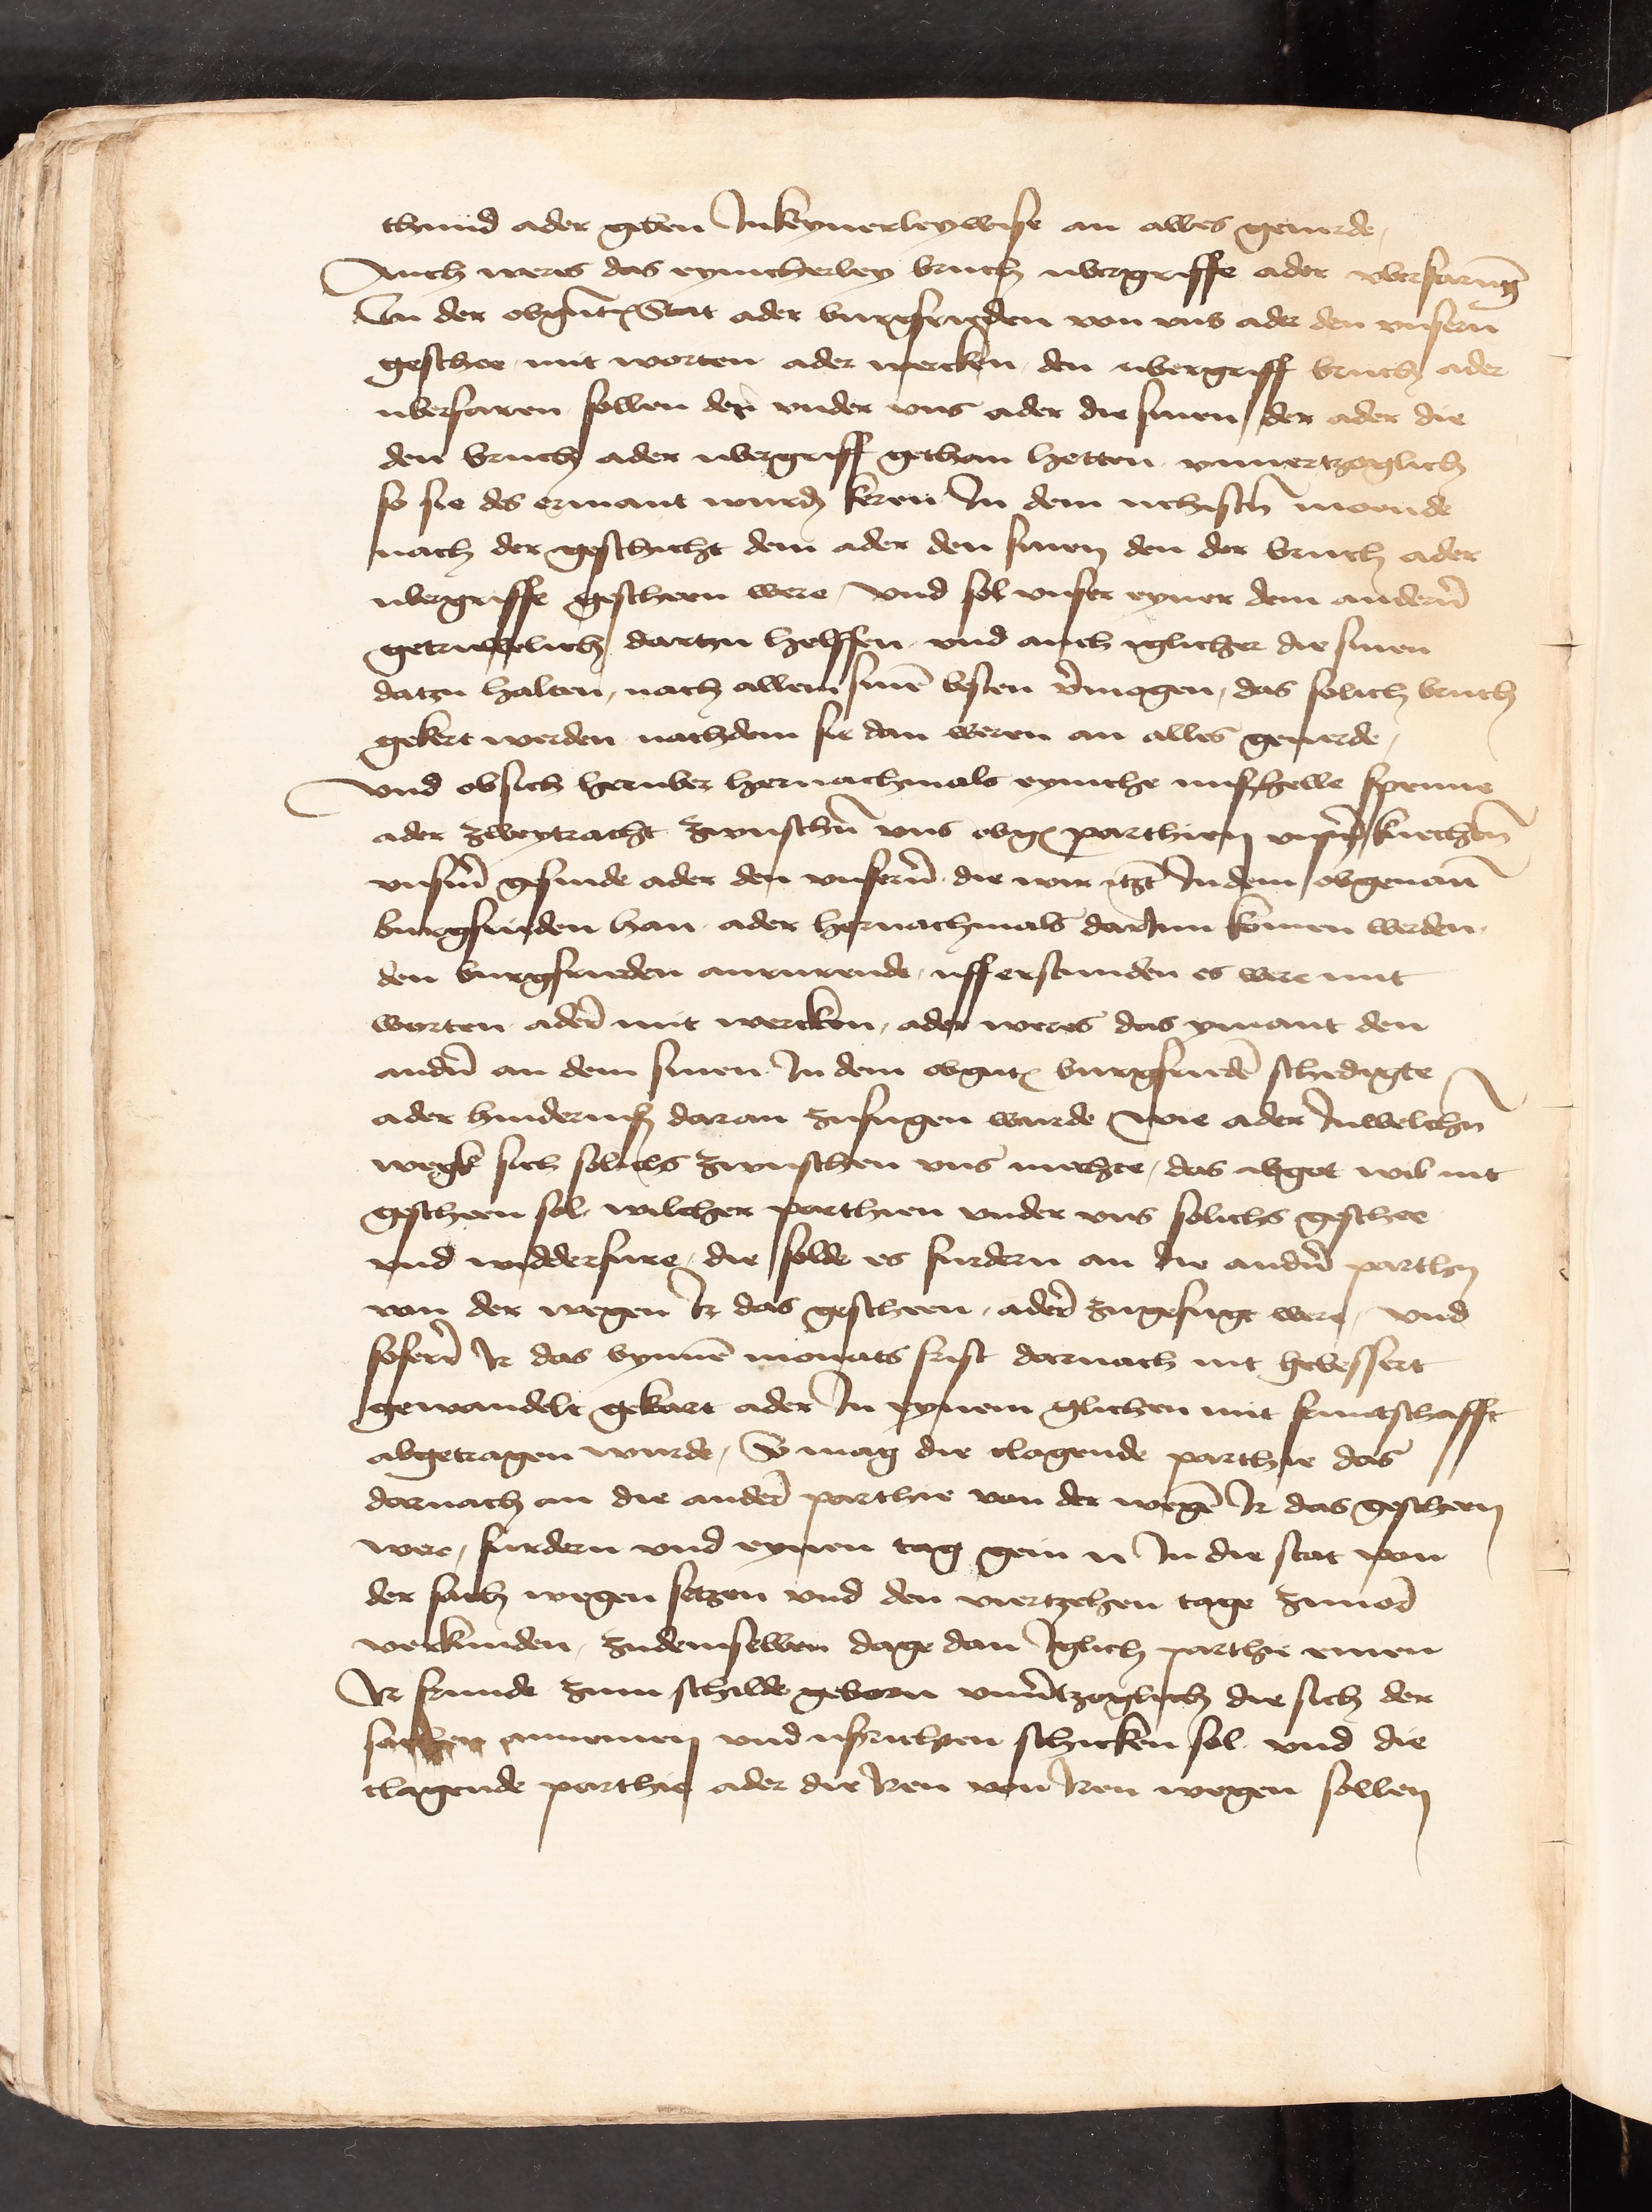 thund ader geben Inkeynerleywise an alles geuerde,
Auch weres das eyncherley bruch ubergriffe ader uberfarung
In der obgnt Stat ader burgfrieden von uns ader den unsern
geschee mit worten ader wercken, den ubergriff bruch ader
uberfaren sollen der under uns ader die sinen der ader die
den bruch ader ubergriff gethan hetten unvertzoglich
so sie des ermant wurden keren In dem nehisten moende
nach der geschicht dem ader den sinen den der bruch ader
ubergriffe gescheen were, Und sol unser eyner dem andern
getruwelich dartzu helffen und auch iglicher die sinen
datzu halten, nach allem sinē besten v̄mogen, das solich bruch
gekert werden nachdem sie dan weren an alles geuerde,
Und obsich heruber hernachmals eyniche missehelle spenne
ader zweytracht zwuschen uns obgn parthien unsern knechten
unserm gesinde ader den unsern die wir itzt Indem obgenan
burgfrieden han ader hernachmals darinn komen werden
den burgfrieden anrurende, ufferstunden es were mit
worten ader mit wercken, ader weres das ymant den
andn̄ an dem sinen In dem obgnt burgfriedē schedigte
ader hindernis daran zufugen wurde Wie ader Inwelchn
wegk sich solichs zwuschen uns mechte, das abgot wil nit
gescheen sol, wilcher parthien under uns solichs geschee
und widderfure, die solde es furdern an die andn̄ parthy
von der wegen Ir das gescheen, ader zugefugt were, Und
sofern Ir das bynnē monats frist darnach nit gebessert
gewandelt gekart ader In eynem glichen mit fruntschafft
abgetragen wurde, So mag die clagende parthie das
darnach an die ander parthie von der wegē Ir das gescheen
were, furdern und eynen tag gein N In die stat von
der sach wegen setzen und den viertzehen tage zuuor
verkunden, Zudemselben dage dan Iglich parthie einen
Ir frunde zum schilde geborn unv̄tzoglich die sich der
sachen annemen und ußrichten schicken sol und die
clagende parthie ader die Iren von Iren wegen sollen